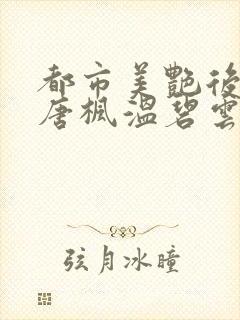 都市美艷後
唐楓溫碧雲
弦月冰瞳